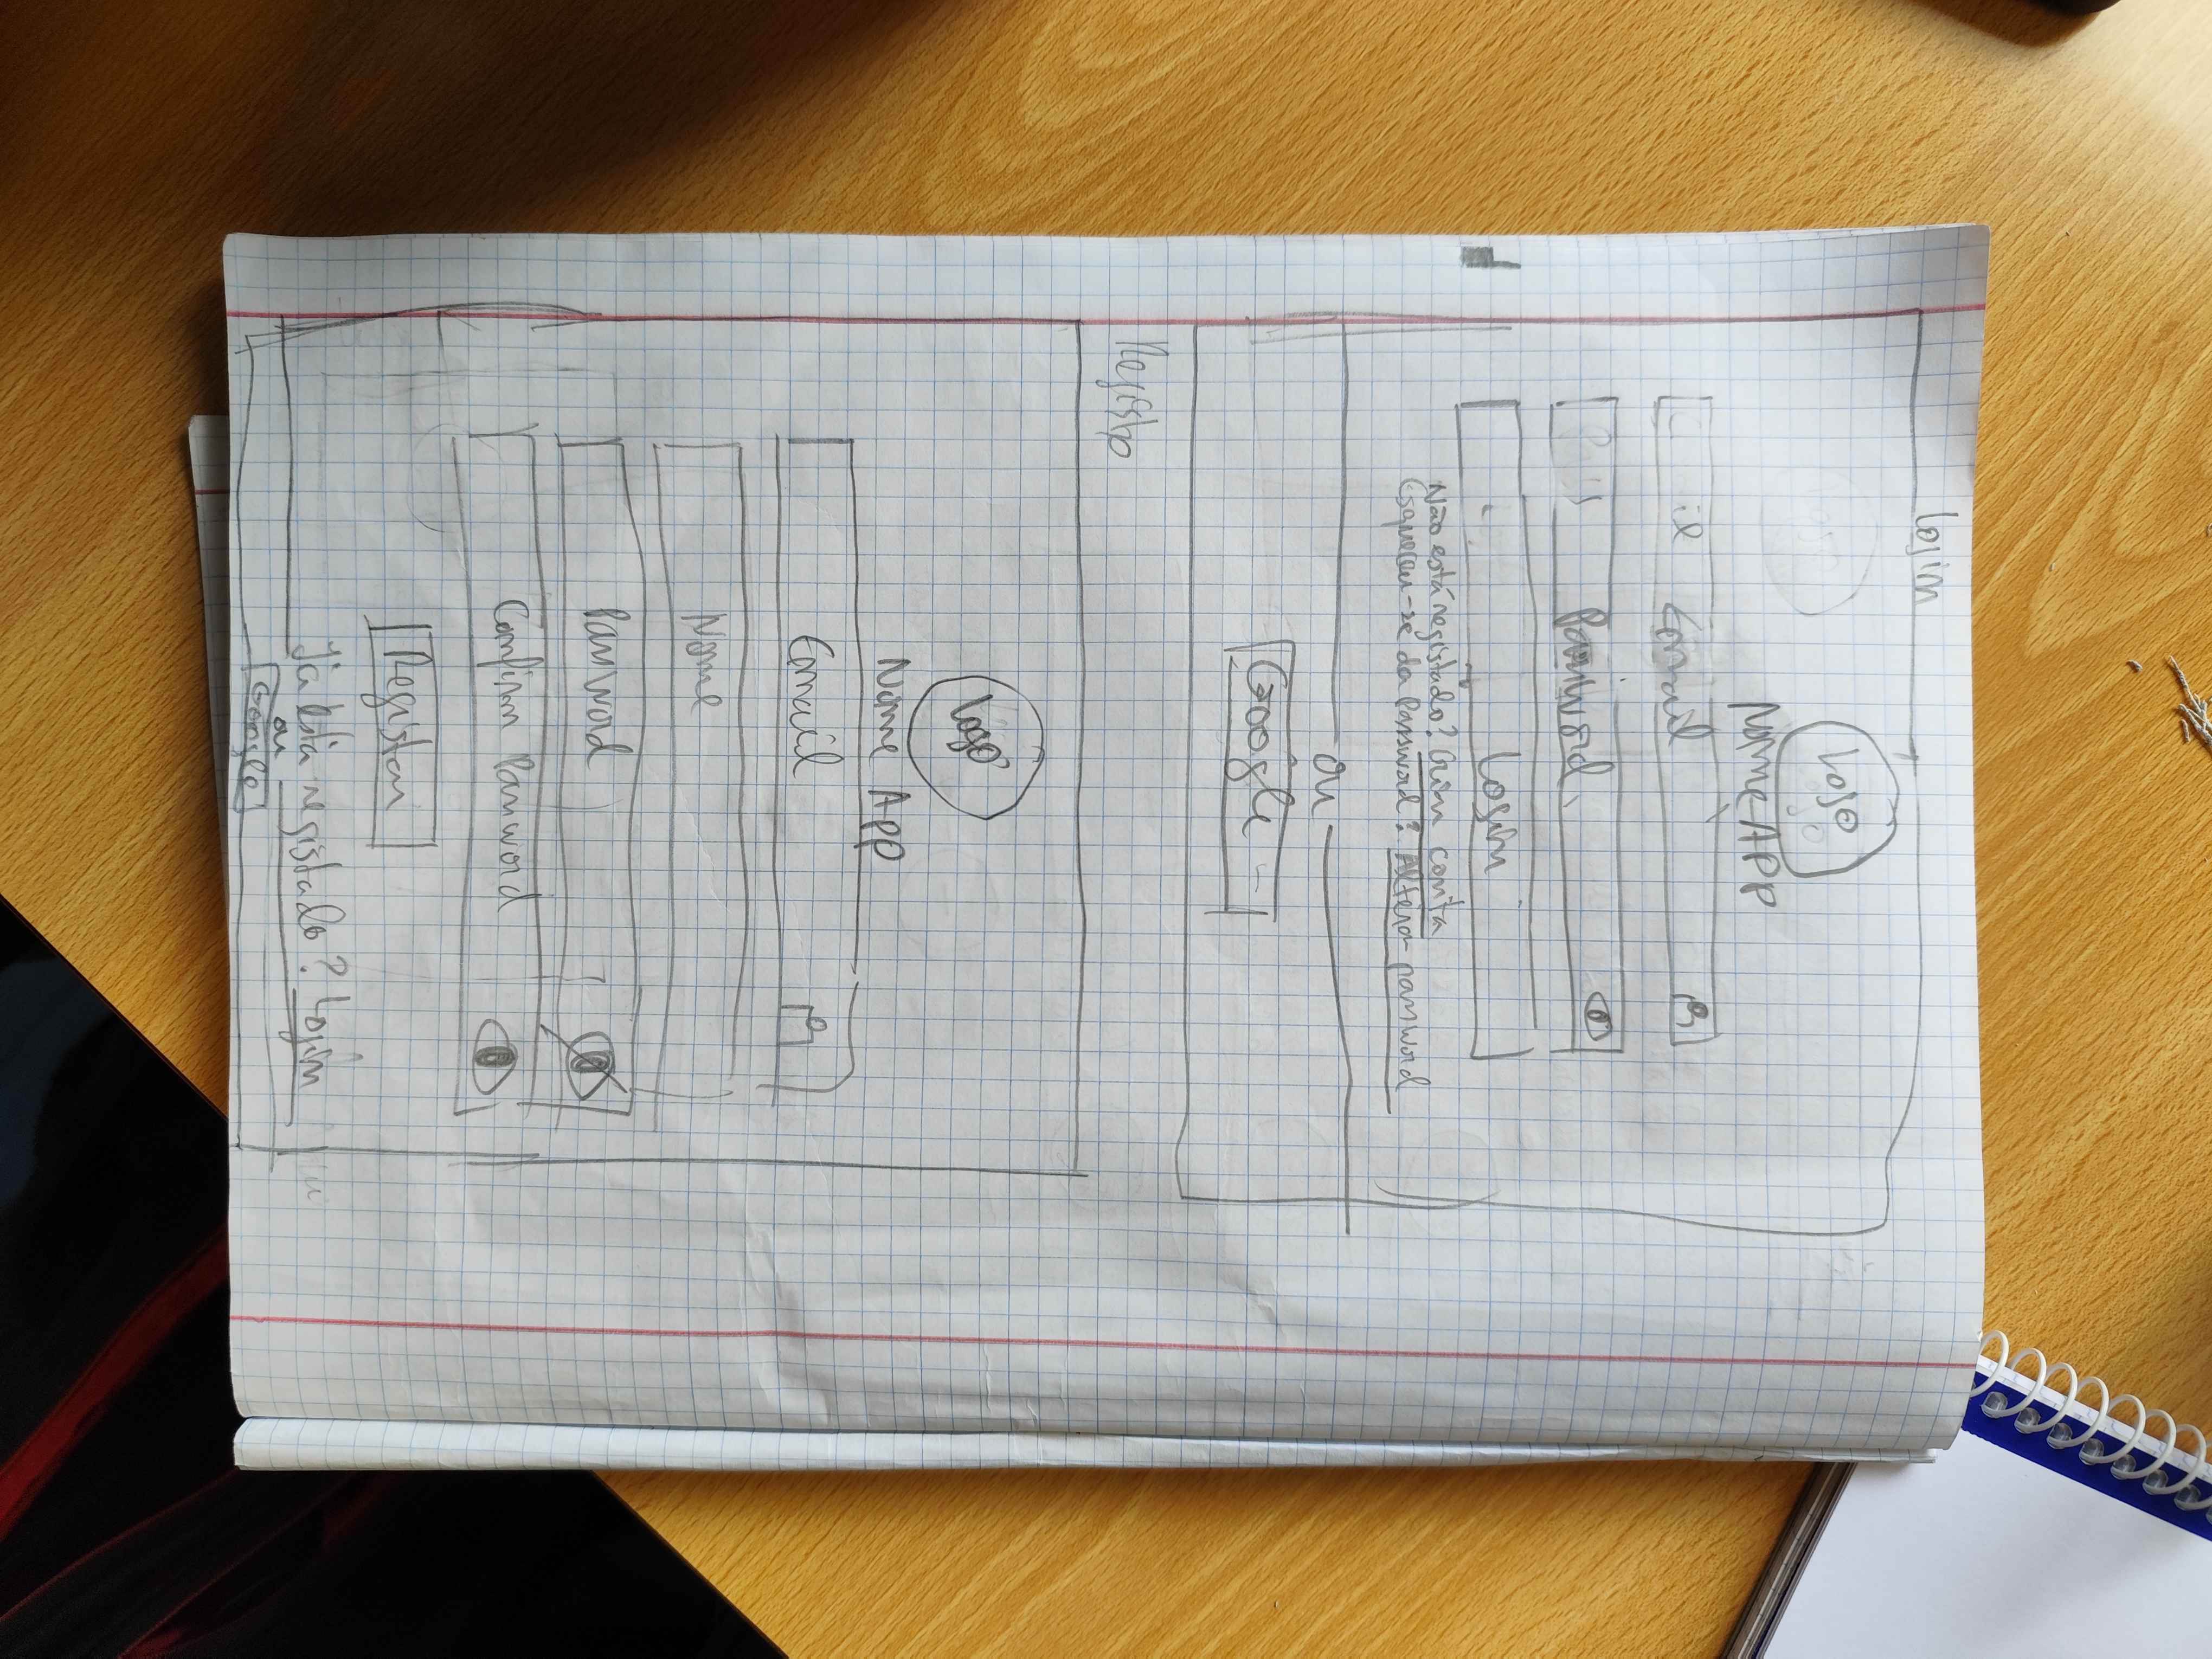 Login
Logo
Nome APP
Email
Password
Login
Não está registado? Criar conta
Esqueceu-se da Password? Alterar password
ou
Google
Registo
Logo
Nome App
Email
Nome
Password
Confirm Password
Registar
Já está registado? Login
ou
Google